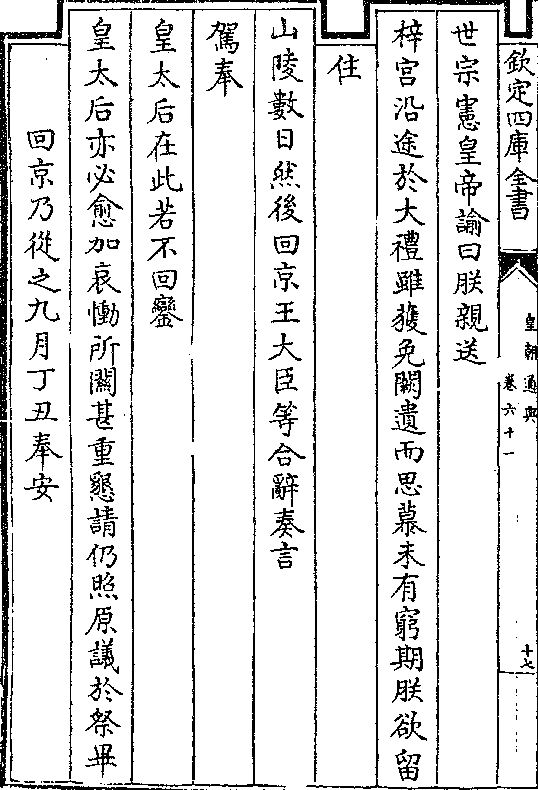 欽定四庫全書
皇朝通典
卷六十一
十七
世宗憲皇帝諭曰朕親送
梓宫沿途於大禮雖獲免闕遺而思慕未有窮期朕欲留
住
山陵數日然後回京王大臣等合辭奏言
駕奉
皇太后在此若不回鑾
皇太后亦必愈加哀慟所關甚重懇請仍照原議於祭畢
回京乃從之九月丁丑奉安